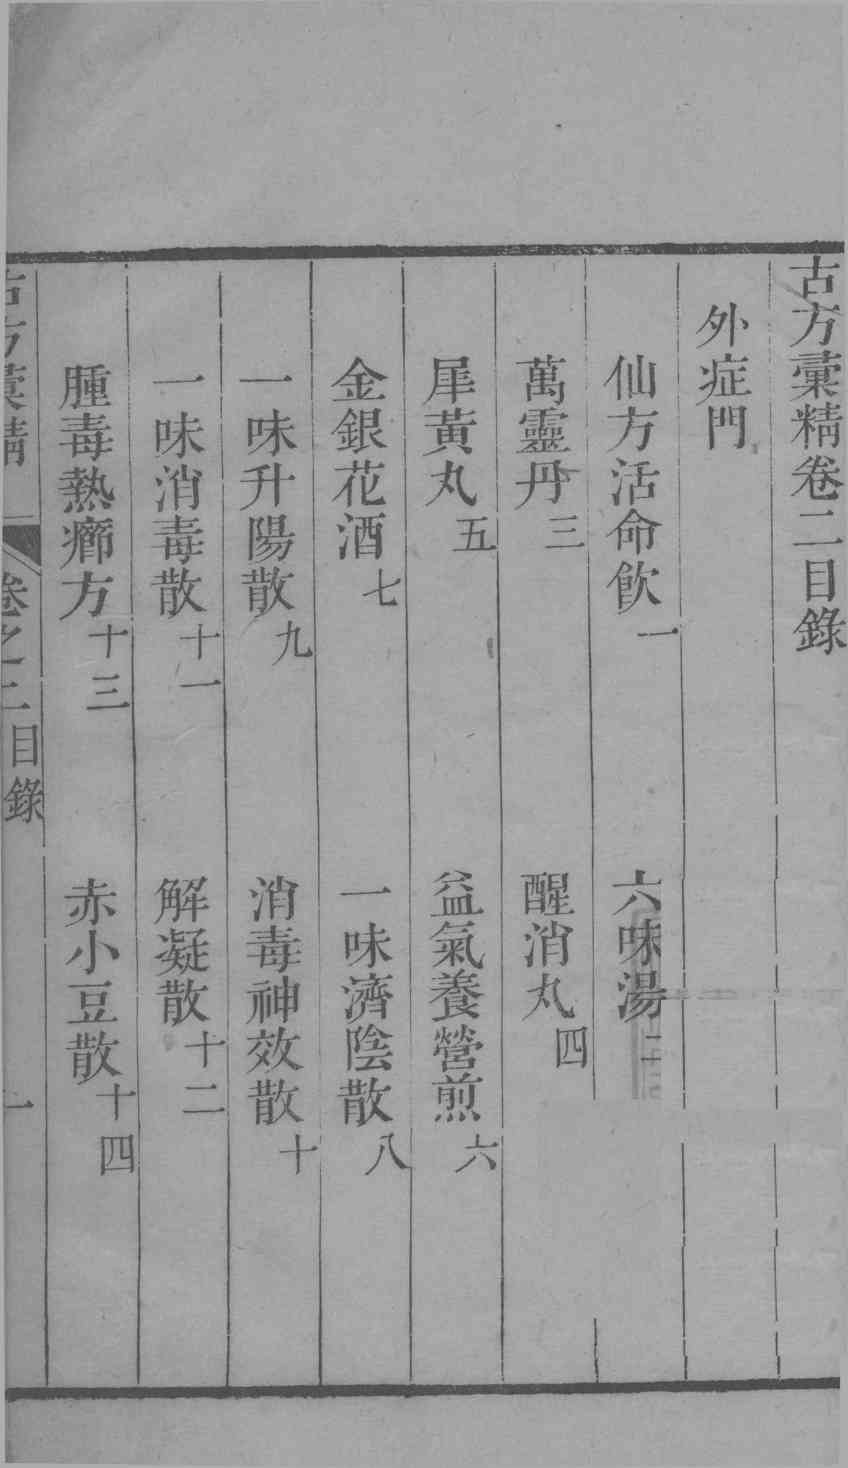 古方彙精卷二目錄
外症門
仙方活命飲一 六味湯二
萬靈丹三 醒消丸四
犀黃丸五 益氣養營煎六
金銀花酒七 一味濟陰散八
一味升陽散九 消毒神效散十
一味消毒散十一 解凝散十二
腫毒熱癤方十三 赤小豆散十四
古方彙精 卷之二目錄 一